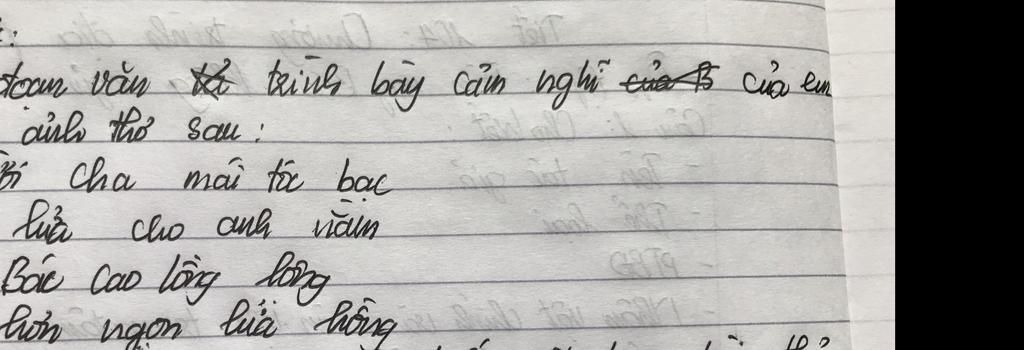 đoạn văn trình bày cảm nghĩ của em
ảnh thơ sau:
cha mái tóc bạc
lửa cho anh nằm
Bác cao lồng lộng
hơn ngọn lửa hồng